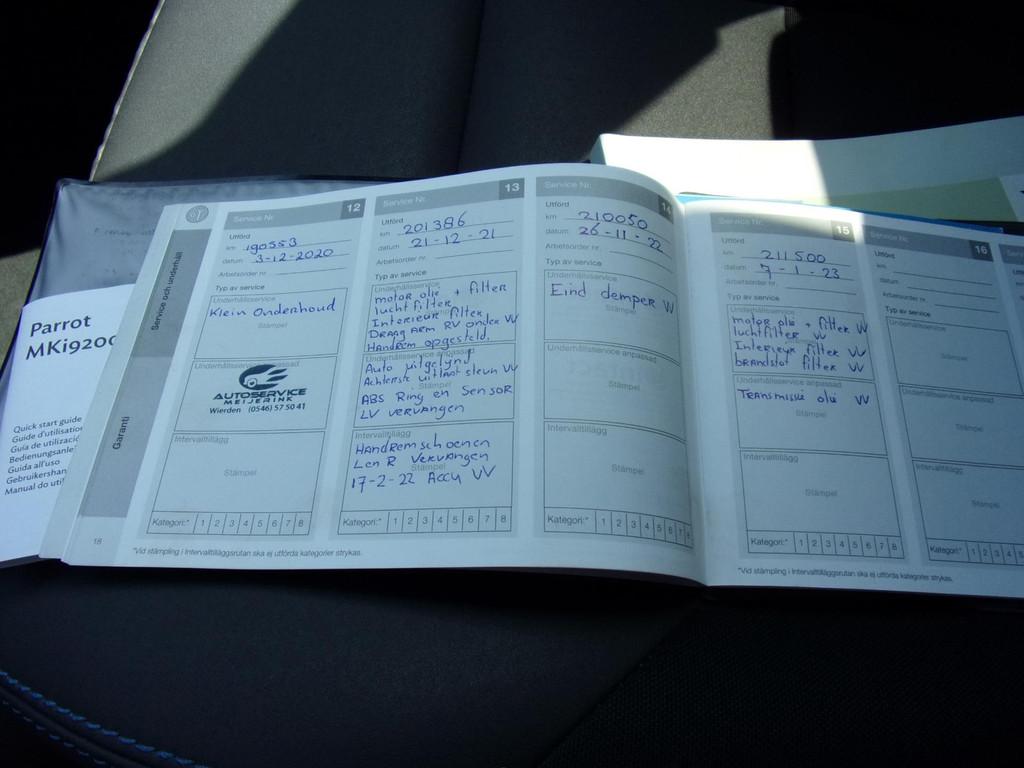 Parrot
MKi9200
Quick start guide
Guide d'utilisation
Guía de utilización
Bedienungsanlei
Guida all'uso
Gebruikershan
Manual do uti
Service och underhåll
Garanti
18
Service Nr. 12
Utförd
km 190553
datum 3-12-2020
Arbetsorder nr.
Typ av service
Underhållsservice
Klein Onderhoud
Stämpel
AUTOSERVICE
MEIJERINK
Wierden (0546) 57 50 41
Intervalltillägg
Stämpel
Kategori:* 1 2 3 4 5 6 7 8
Service Nr. 13
Utförd
km 201386
datum 21-12-21
Arbetsorder nr.
Typ av service
Underhållsservice
motor olie + filter
luchtfilter VV
Interieur filter
DRAAG ARM RV onder VV
Handrem opgesteld.
Underhållsservice anpassad
Auto uitgelynd
Achterste uitlaat steun VV
Stämpel
ABS Ring en Sensor
LV vervangen
Intervalltillägg
Handremschoenen
L en R Vervangen
Stämpel
17-2-22 Accu VV
Kategori:* 1 2 3 4 5 6 7 8
Service Nr. 14
Utförd
km 210050
datum 26-11-22
Arbetsorder nr.
Typ av service
Underhållsservice
Eind demper VV
Stämpel
Underhållsservice anpassad
Stämpel
Intervalltillägg
Stämpel
Kategori:* 1 2 3 4 5 6 7 8
*Vid stämpling i Intervalltilläggsrutan ska ej utförda kategorier strykas.
Service Nr. 15
Utförd
km 211500
datum 7-1-23
Arbetsorder nr.
Typ av service
Underhållsservice
motor olie + filter VV
luchtfilter VV
Interieur filter VV
brandstof filter VV
Underhållsservice anpassad
Transmissie olie VV
Stämpel
Intervalltillägg
Stämpel
Kategori:* 1 2 3 4 5 6 7 8
Service Nr. 16
Utförd
km
datum
Arbetsorder nr.
Typ av service
Underhållsservice
Stämpel
Underhållsservice anpassad
Stämpel
Intervalltillägg
Stämpel
Kategori:* 1 2 3 4 5
*Vid stämpling i Intervalltilläggsrutan ska ej utförda kategorier strykas.